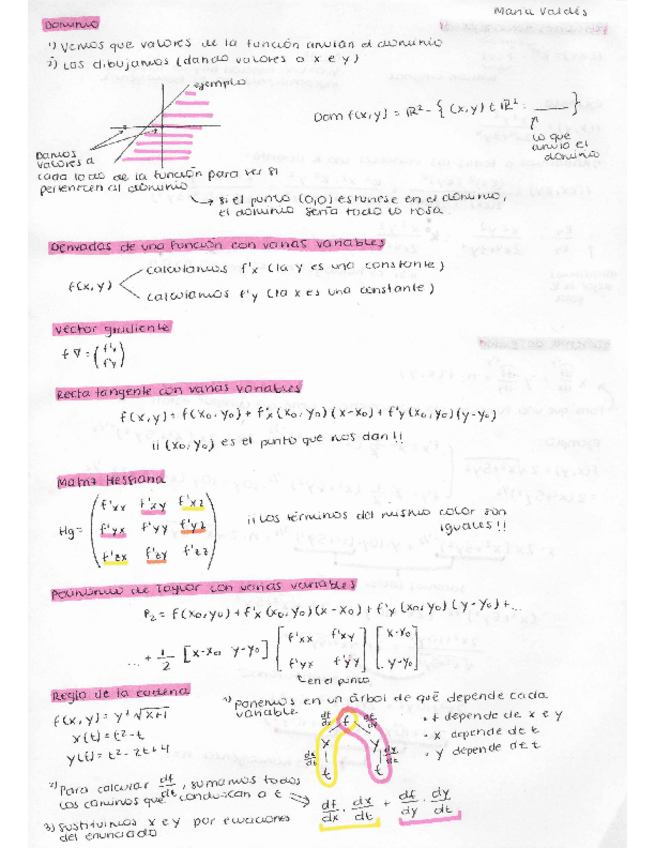 Maria Valdés
Dominio
1) Vemos que valores de la función anulan el dominio
2) Los dibujamos (dando valores a x e y)
ejemplo
Dom f(x,y) = ℝ² - { (x,y) ∈ ℝ² : ____ }
lo que
anula el
dominio
Damos
valores a
cada lado de la función para ver si
pertenecen al dominio
→ si el punto (0,0) estuviese en el dominio,
el dominio sería todo lo rosa.
Derivadas de una función con varias variables
f(x,y)
calculamos f'x (la y es una constante)
calculamos f'y (la x es una constante)
Vector gradiente
f ∇ = (f'x f'y)
Recta tangente con varias variables
f(x,y) = f(x₀,y₀) + f'x (x₀,y₀)(x-x₀) + f'y (x₀,y₀)(y-y₀)
¡¡ (x₀,y₀) es el punto que nos dan!!
Matriz Hessiana
Hg =
f'xx f'xy f'xz
f'yx f'yy f'yz
f'zx f'zy f'zz
¡¡Los términos del mismo color son
iguales!!
Polinomio de Taylor con varias variables
P₂ = f(x₀,y₀) + f'x (x₀,y₀)(x-x₀) + f'y (x₀,y₀)(y-y₀) + ...
... + 1/2 [x-x₀ y-y₀] [f'xx f'xy f'yx f'yy] [x-x₀ y-y₀]
en el punto
Regla de la cadena
f(x,y) = y² √x+1
x(t) = t² - t
y(t) = t² - 2t + 4
1) Ponemos en un árbol de qué depende cada
variable
df/dt f df/dt
x y
dx/dt dx/dt
t t
• f depende de x e y
• x depende de t
• y depende de t
2) Para calcular df/dt, sumamos todos
los caminos que conduzcan a t ⇒ df/dx · dx/dt + df/dy · dy/dt
3) Sustituimos x e y por ecuaciones
del enunciado